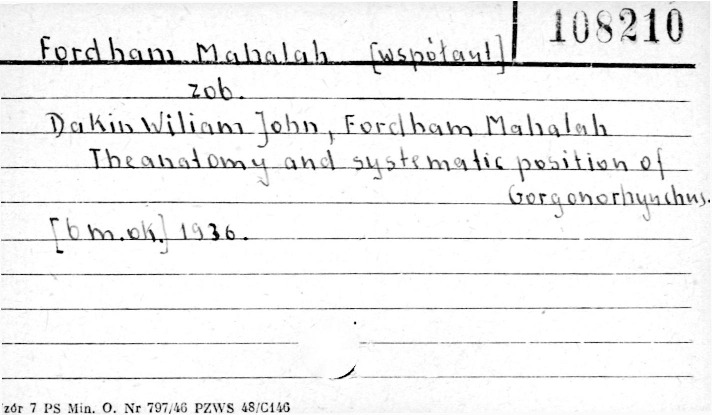 108210
Fordham Mahalah [współaut]
zob.
Dakin Wiliam John, Fordham Mahalah
The anatomy and systematic position of
Gorgonorhynchus.
[b m. ok.] 1936.
zór 7 PS Min. O. Nr 797/46 PZWS 48/C146